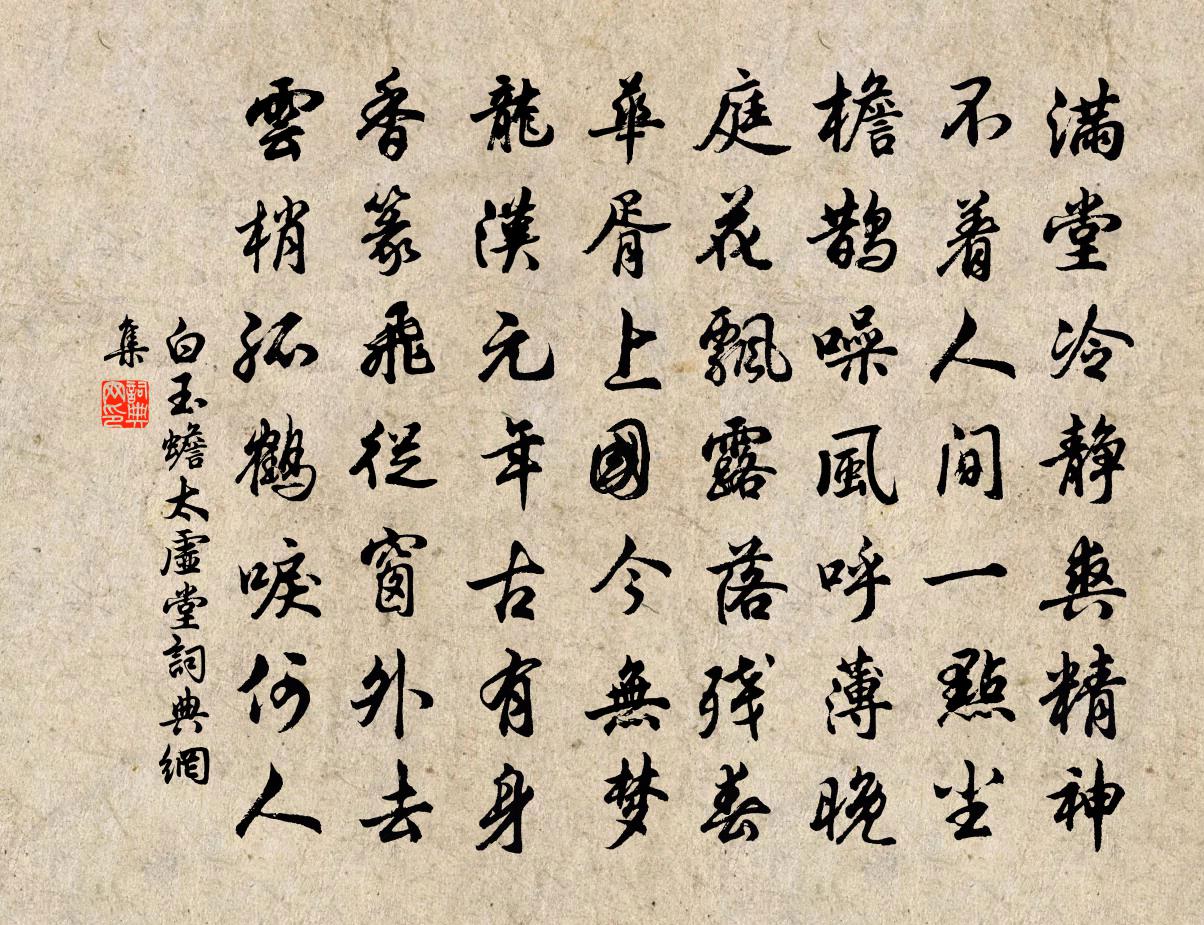 滿堂冷静爽精神
不着人间一點尘
檐鹊噪風呼薄晚
庭花飄露落残春
華胥上國今無梦
龍漢元年古有身
香篆飛從窗外去
雲梢孤鶴唳何人
白玉蟾太虛堂詞典網
集
詞典网印